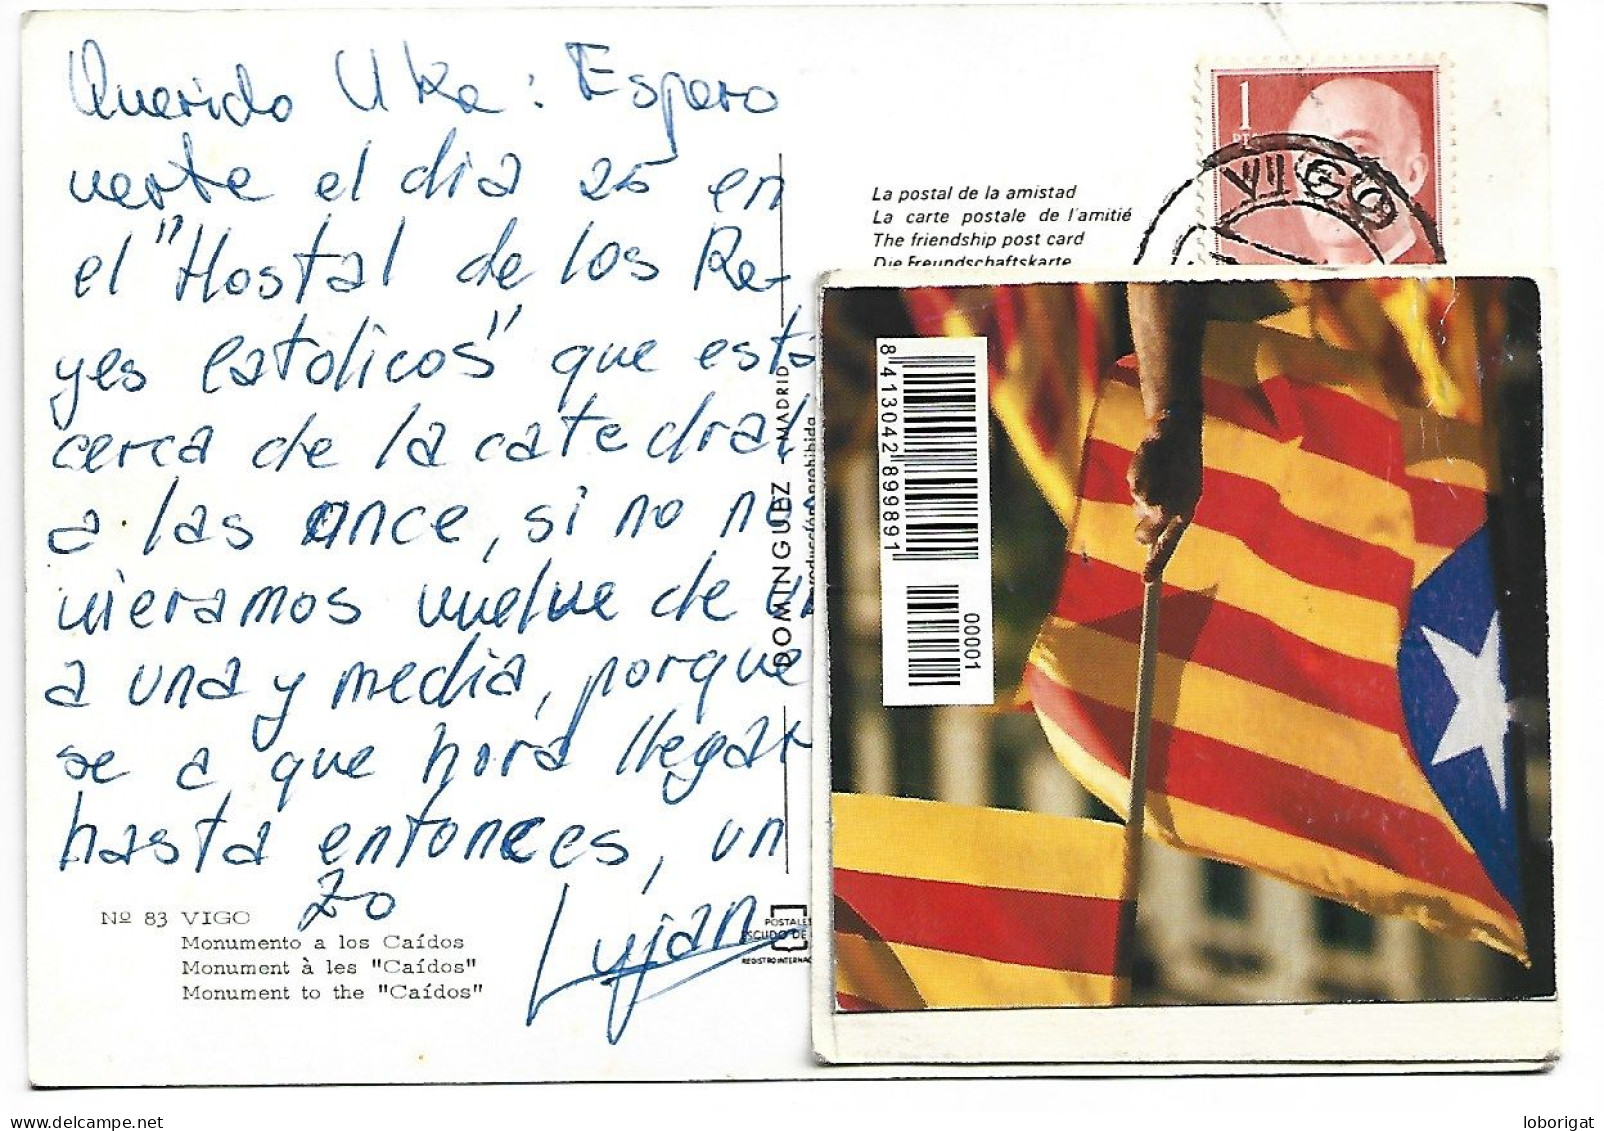 Querido Uka: Espero
verte el dia 25 en
el "Hostal de los Re-
yes Catolicos" que está
cerca de la catedral
a las once, si no nos
vieramos vuelve de
a una y media, porque
se a que hora llegar
hasta entonces, un
Lujan
Nº 83 VIGO
Monumento a los Caídos
Monument à les "Caídos"
Monument to the "Caídos"
DOMINGUEZ - MADRID
producción prohibida
POSTALES
ESCUDO DE
REGISTRO INTERNAC
La postal de la amistad
La carte postale de l'amitié
The friendship post card
Die Freundschaftskarte
1
PTS
VIGO
8 413042 899891
00001
loborigat